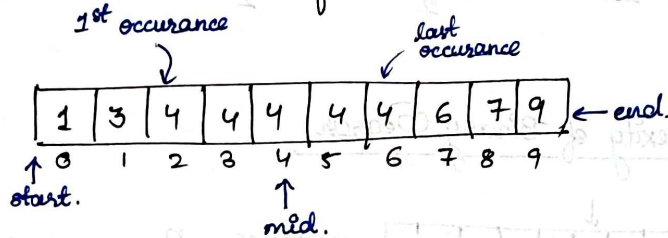 1st occurance
last
occurance
1 3 4 4 4 4 4 6 7 9 end.
0 1 2 3 4 5 6 7 8 9
start.
mid.